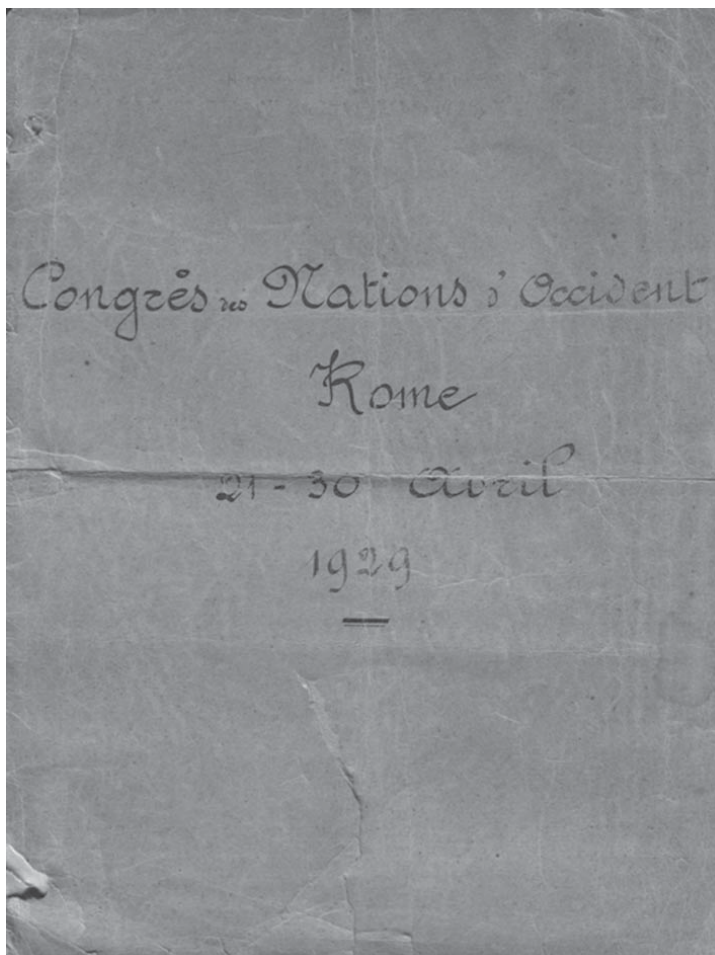 Congrès des Nations d'Occident
Rome
21 - 30 Avril
1929